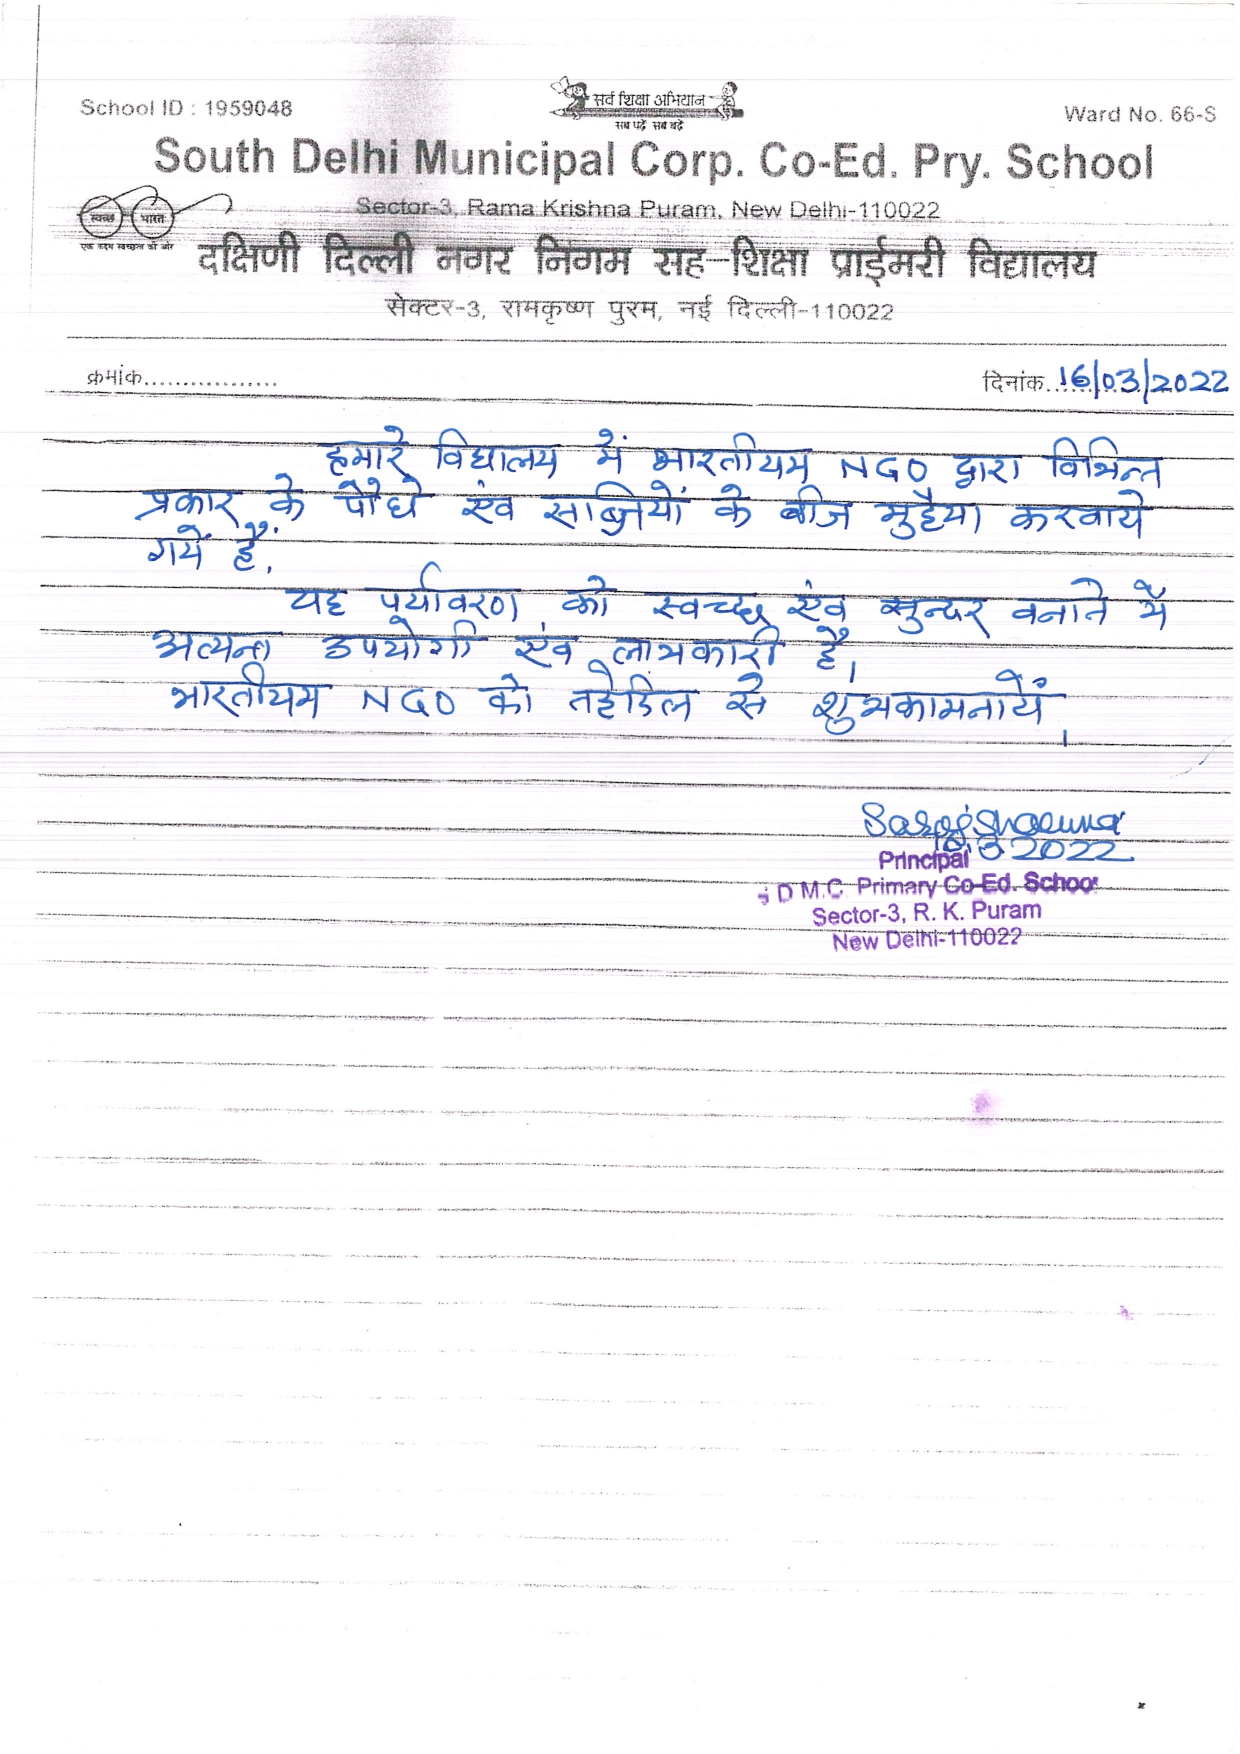 School ID : 1959048
सर्व शिक्षा अभियान
सब पढ़ें सब बढ़ें
Ward No. 66-S
South Delhi Municipal Corp. Co-Ed. Pry. School
स्वच्छ भारत
एक कदम स्वच्छता की ओर
Sector-3, Rama Krishna Puram, New Delhi-110022
दक्षिणी दिल्ली नगर निगम सह-शिक्षा प्राईमरी विद्यालय
सेक्टर-3, रामकृष्ण पुरम, नई दिल्ली-110022
क्रमांक.................
दिनांक..... 16/03/2022
हमारे विद्यालय में भारतीयम NGO द्वारा विभिन्न
प्रकार के पौधे एंव सब्जियों के बीज मुहैया करवाये
गयें हैं.
यह पर्यावरण को स्वच्छ एंव सुन्दर बनाने में
अत्यन्त उपयोगी एंव लाभकारी है।
भारतीयम NGO को तहेदिल से शुभकामनायें।
Saroj Sharma
2022
Principal
D M.C. Primary Co-Ed. School
Sector-3, R. K. Puram
New Delhi-110022